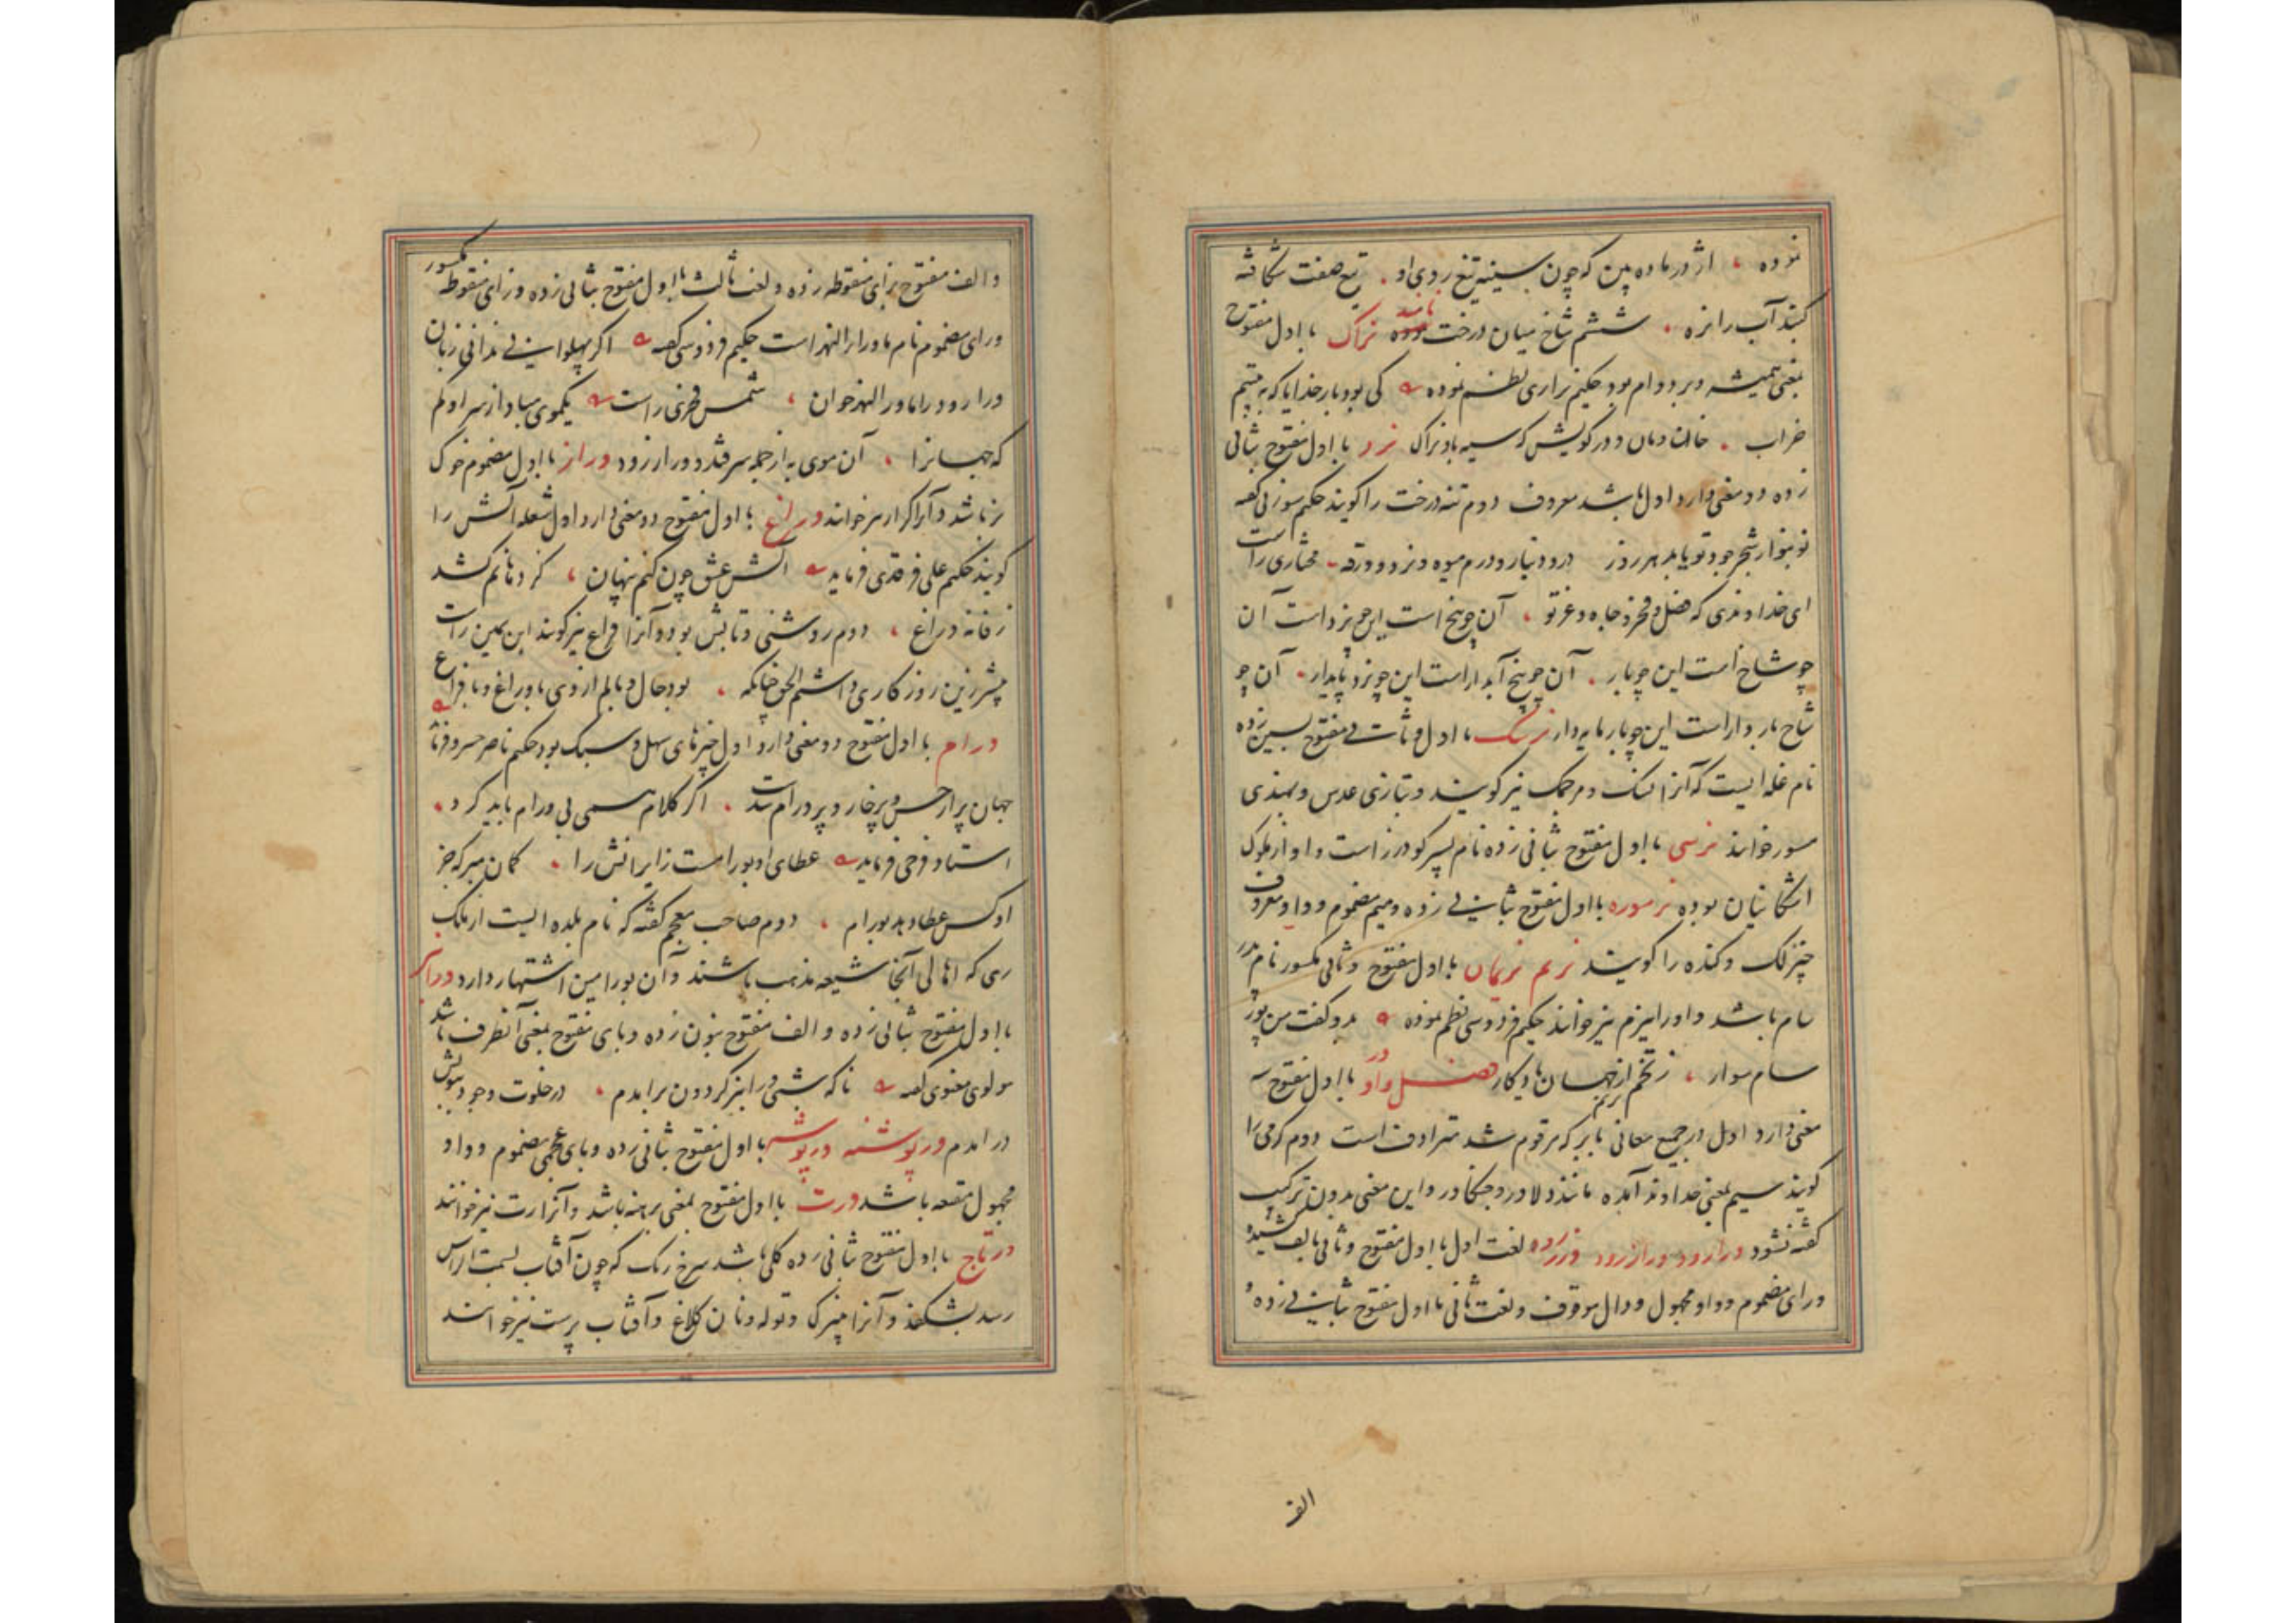 نموده ، اژدر ماده بین که چون سینه تیغ روی او . تیغ صفت شکافته
کند آب را نزه . ششم شاخ میان درخت باشد نراک با اول مفتوح
بمعنی همیشه و بر دوام بود حکیم نزاری نظم نموده کی بود بار خدایا که به بینیم
خراب . خان و مان و در کویش که سیه باد نراک نرد با اول مفتوح بثانی
زده دو معنی دارد اول باشد معروف دوم تنه درخت را گویند حکیم سوزنی گفته
تو بنواز شجر جود تو یابد هر روز درو دینار و درم میوه و نرد و ورقه مختاری راست
ای خداوندی که فضل و فخر و جاه و عز تو ، آن چو بیخ است این چو نرد است آن
چو شاخ است این چو بار . آن چو بیخ آبدار است این چو نرد پایدار . آن چو
شاخ بار دار است این چو بار مایه دار نرسک با اول و ثانی مفتوح بسین زده
نام غله ایست که آنرا نسک و مرجمک نیز گویند و بتازی عدس و بهندی
مسور خوانند نرسی با اول مفتوح بثانی زده نام پسر گودرز است و او از ملوک
اشکانیان بوده نرموره با اول مفتوح بثانی زده و میم مضموم و واو معروف
چیز لک و کنده را گویند نرم نریمان با اول مفتوح و ثانی مکسور نام پدر
سام باشد و او را نیرم نیز خوانند حکیم فردوسی نظم نموده بدو گفت من پور
سام سوار ، ز تخم نریم از جهان یادگار فصل واو ور با اول مفتوح سه
معنی دارد اول در جمیع معانی با بر که مرقوم شد مترادف است دوم گرمی را
گویند سیم بمعنی خداوند آمده مانند دلاور و جنگاور و این معنی بدون ترکیب
گفته نشود ورارود ورازرود ورزرود لغت اول با اول مفتوح و ثانی بالف کشیده
و رای مضموم و واو مجهول و دال موقوف و لغت ثانی با اول مفتوح بثانی زده
الف
و الف مفتوح بزای منقوطه زده و لغت ثالث با اول مفتوح بثانی زده و زای منقوطه مکسور
و رای مضموم نام ماوراء النهر است حکیم فردوسی گفته اگر پهلوانی ندانی زبان
ورارود را ماورالنهر خوان ، شمس فخری راست یکموی مباد از سر او کم
که جهانرا ، آن موی به از جمله سرقند و ورازرود وراز با اول مضموم خوک
نر باشد و آنرا گراز نیز خوانند وراغ با اول مفتوح دو معنی دارد اول شعله آتش را
گویند حکیم علی فرقدی فرماید آتش عشق چون کنم پنهان ، کرد تا نم کشد
زفانه وراغ ، دوم روشنی و تابش بود و آنرا فراغ نیز گویند ابن یمین راست
پیشتر زین روز کاری داشتم الحق چنانکه . بود حال و مالم از وی با وراغ و با فراغ
ورام با اول مفتوح دو معنی دارد اول چیزهای سهل و سبک بود حکیم ناصر خسرو فرماید
جهان پر از خس و پر خار و پر ورام شدست . اگر کلام بی ورام باید کرد ،
استاد فرخی فرماید عطای او بورام است زایرانش را . گمان مبر که جز
او کس عطا دهد بورام ، دوم صاحب معجم گفته که نام بلده ایست از ملک
ری که اهالی آنجا شیعه مذهب باشند و آن بورامین اشتهار دارد ورانبر
با اول مفتوح بثانی زده و الف مفتوح بنون زده و بای مفتوح بمعنی آنطرف باشد
مولوی معنوی گفته ناگه شبی ورانبر گردون برآمدم ، در خلوت وجود بیوش
درآمدم ورپوشنه ورپوشه با اول مفتوح بثانی زده و بای عجمی مضموم و واو
مجهول مقنعه باشد ورت با اول مفتوح بمعنی برهنه باشد و آنرا رت نیز خوانند
ورتاج با اول مفتوح بثانی زده گلی باشد سرخ رنگ که چون آفتاب بسمت الراس
رسد بشکفد و آنرا پنیرک و توله و نان کلاغ و آفتاب پرست نیز خوانند